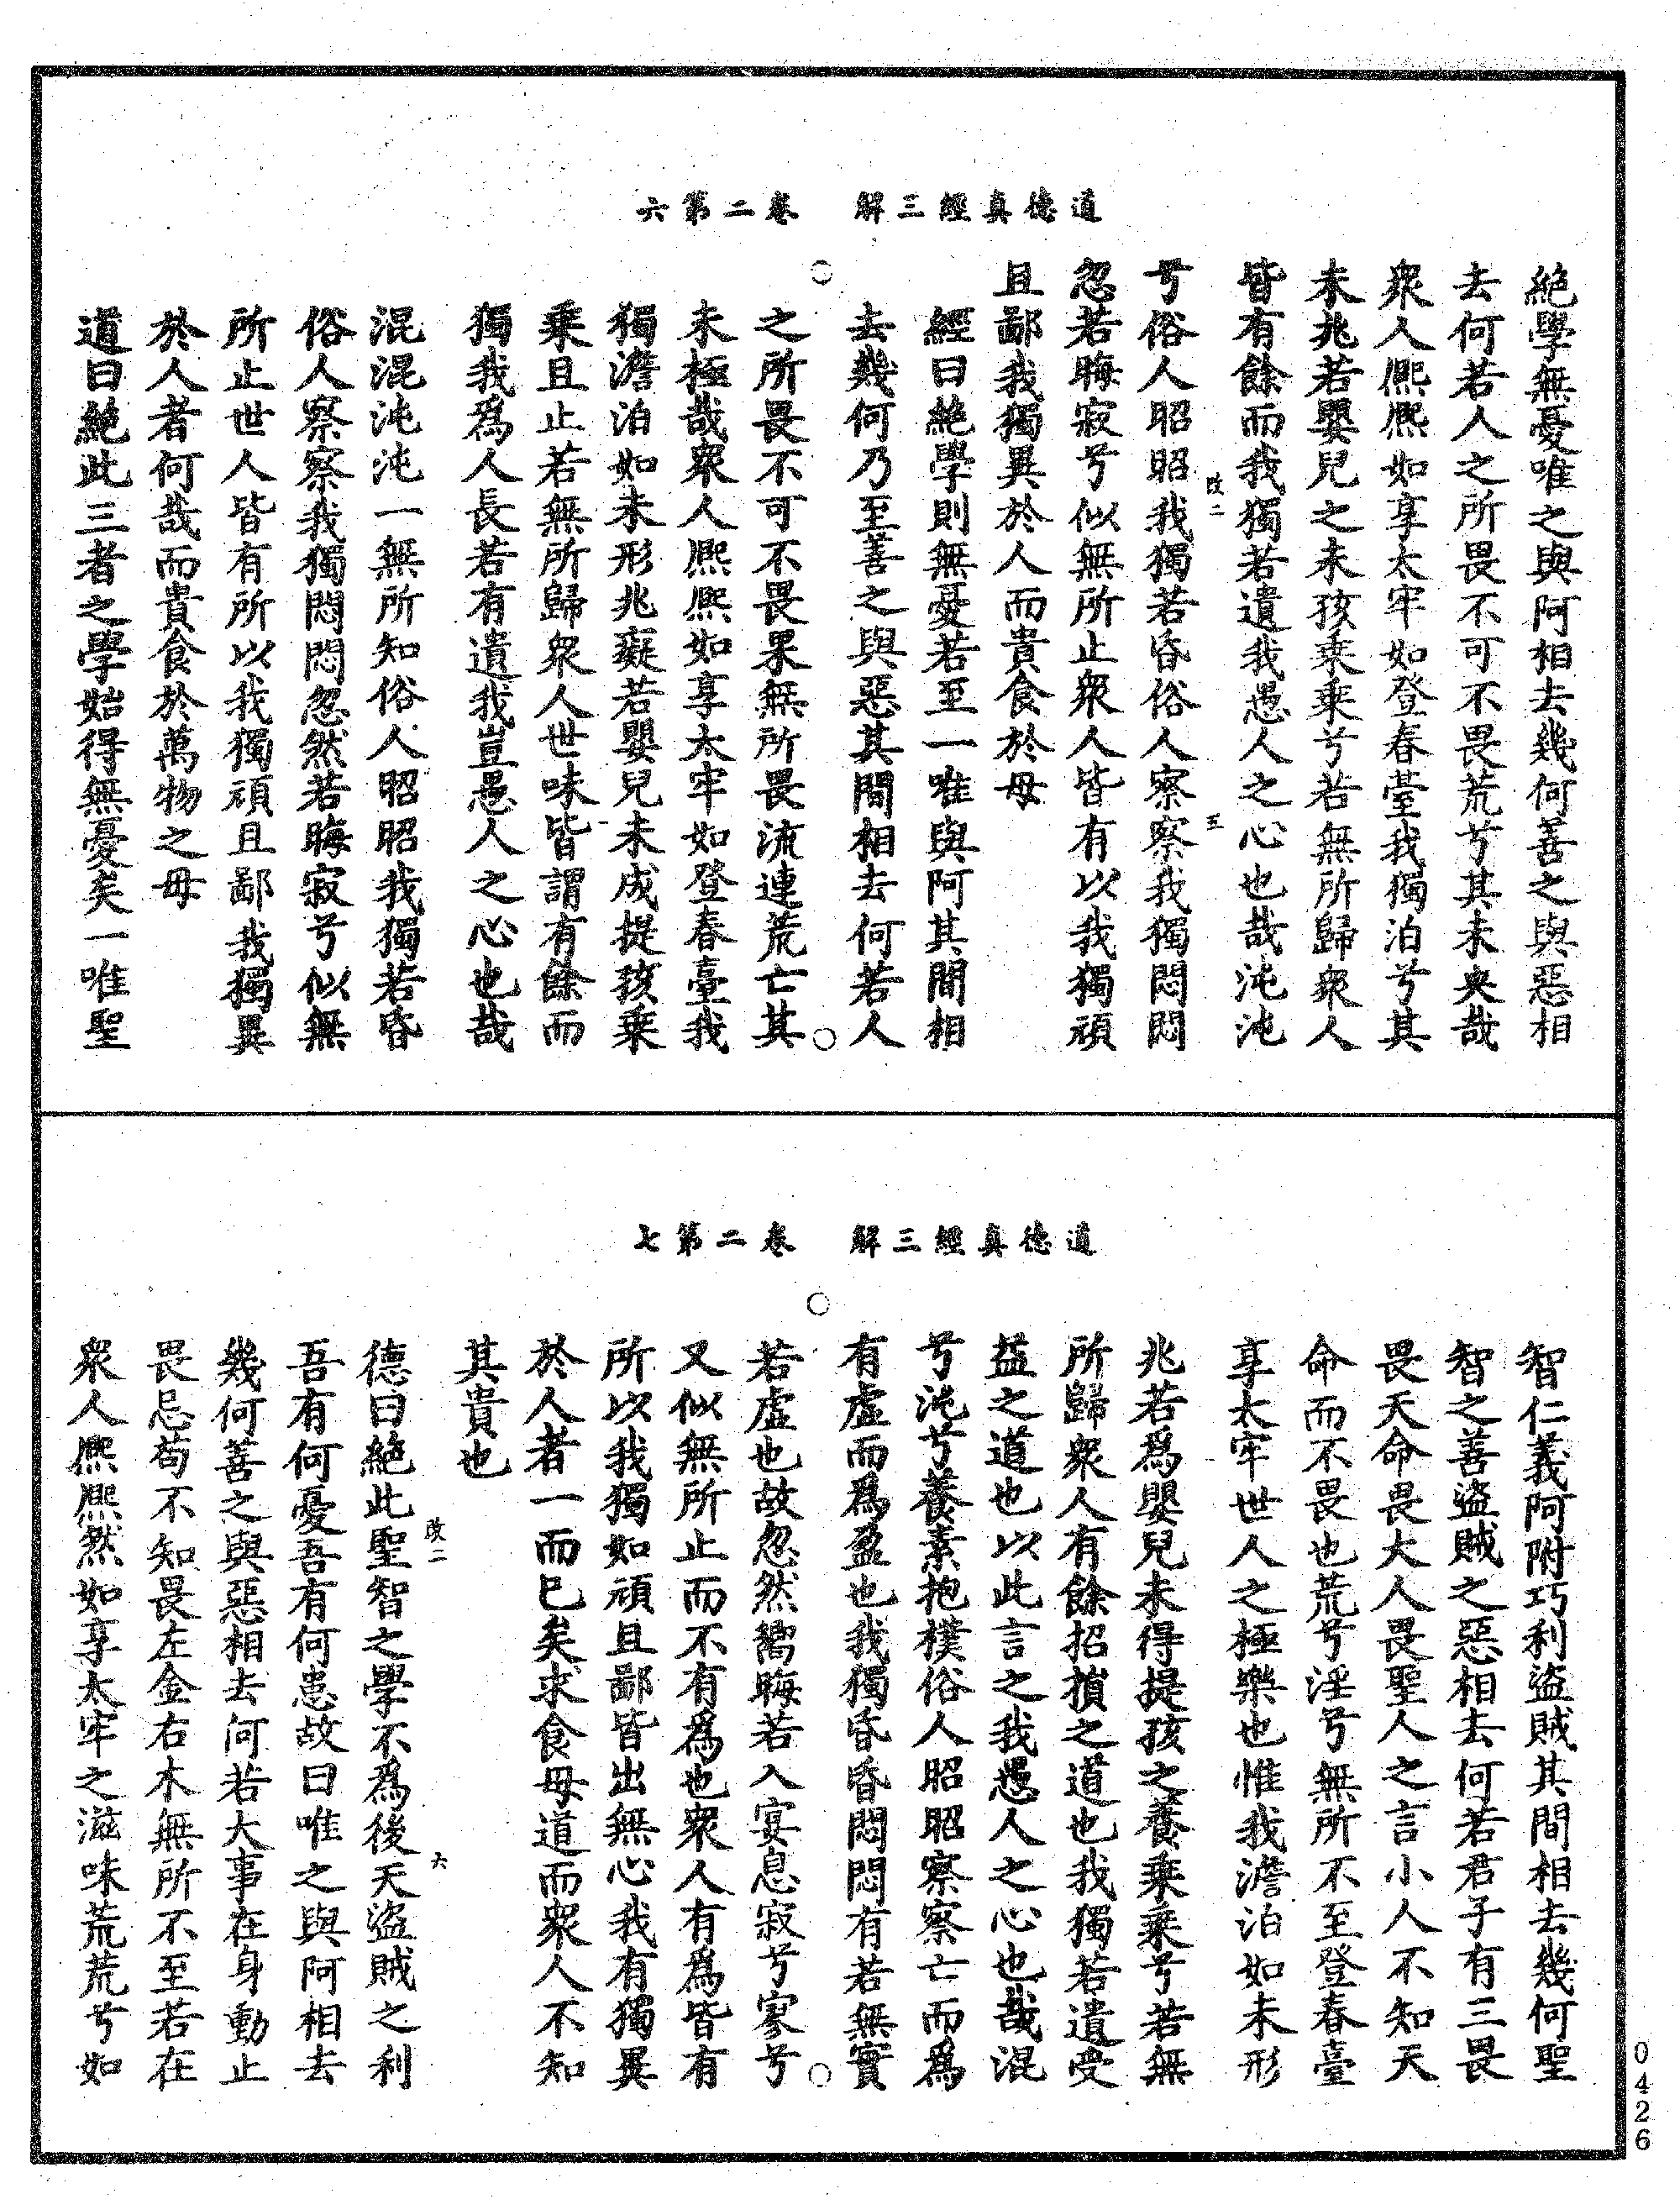 道德真經三解　卷二第六
絕學無憂唯之與阿相去幾何善之與惡相
去何若人之所畏不可不畏荒兮其未央哉
衆人熈熈如享太牢如登春臺我獨泊兮其
未兆若嬰兒之未孩乘乘兮若無所歸衆人
皆有餘而我獨若遺我愚人之心也哉沌沌
兮俗人昭昭我獨若昏俗人察察我獨悶悶
忽若晦寂兮似無所止衆人皆有以我獨頑
且鄙我獨異於人而貴食於母
經曰絕學則無憂若至一唯與阿其間相
去幾何乃至善之與惡其間相去何若人
之所畏不可不畏果無所畏流連荒亡其
未極哉衆人熈熈如享太牢如登春臺我
獨澹泊如未形兆癡若嬰兒未成提孩乘
乘且止若無所歸衆人世味皆謂有餘而
獨我爲人長若有遺我豈愚人之心也哉
混混沌沌一無所知俗人昭昭我獨若昏
俗人察察我獨悶悶忽然若晦寂兮似無
所止世人皆有所以我獨頑且鄙我獨異
於人者何哉而貴食於萬物之母
道曰絕此三者之學始得無憂矣一唯聖
改二
五
道德真經三解　卷二第七
智仁義阿附巧利盜賊其間相去幾何聖
智之善盜賊之惡相去何若君子有三畏
畏天命畏大人畏聖人之言小人不知天
命而不畏也荒兮淫兮無所不至登春臺
享太牢世人之極樂也惟我澹泊如未形
兆若爲嬰兒未得提孩之養乘乘兮若無
所歸衆人有餘招損之道也我獨若遺受
益之道也以此言之我愚人之心也哉混
兮沌兮養素抱樸俗人昭昭察察亡而爲
有虛而爲盈也我獨昏昏悶悶有若無實
若虛也故忽然嚮晦若入宴息寂兮寥兮
又似無所止而不有爲也衆人有爲皆有
所以我獨如頑且鄙皆出無心我有獨異
於人者一而已矣求食母道而衆人不知
其貴也
德曰絕此聖智之學不爲後天盜賊之利
吾有何憂吾有何患故曰唯之與阿相去
幾何善之與惡相去何若大事在身動止
畏忌苟不知畏左金右木無所不至若在
衆人熈熈然如享太牢之滋味荒荒兮如
改二
六
0426